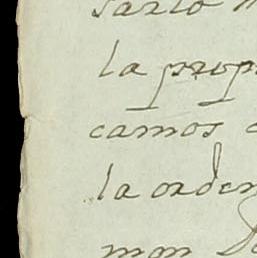 sarlo
la prop
camos
la orden
mon